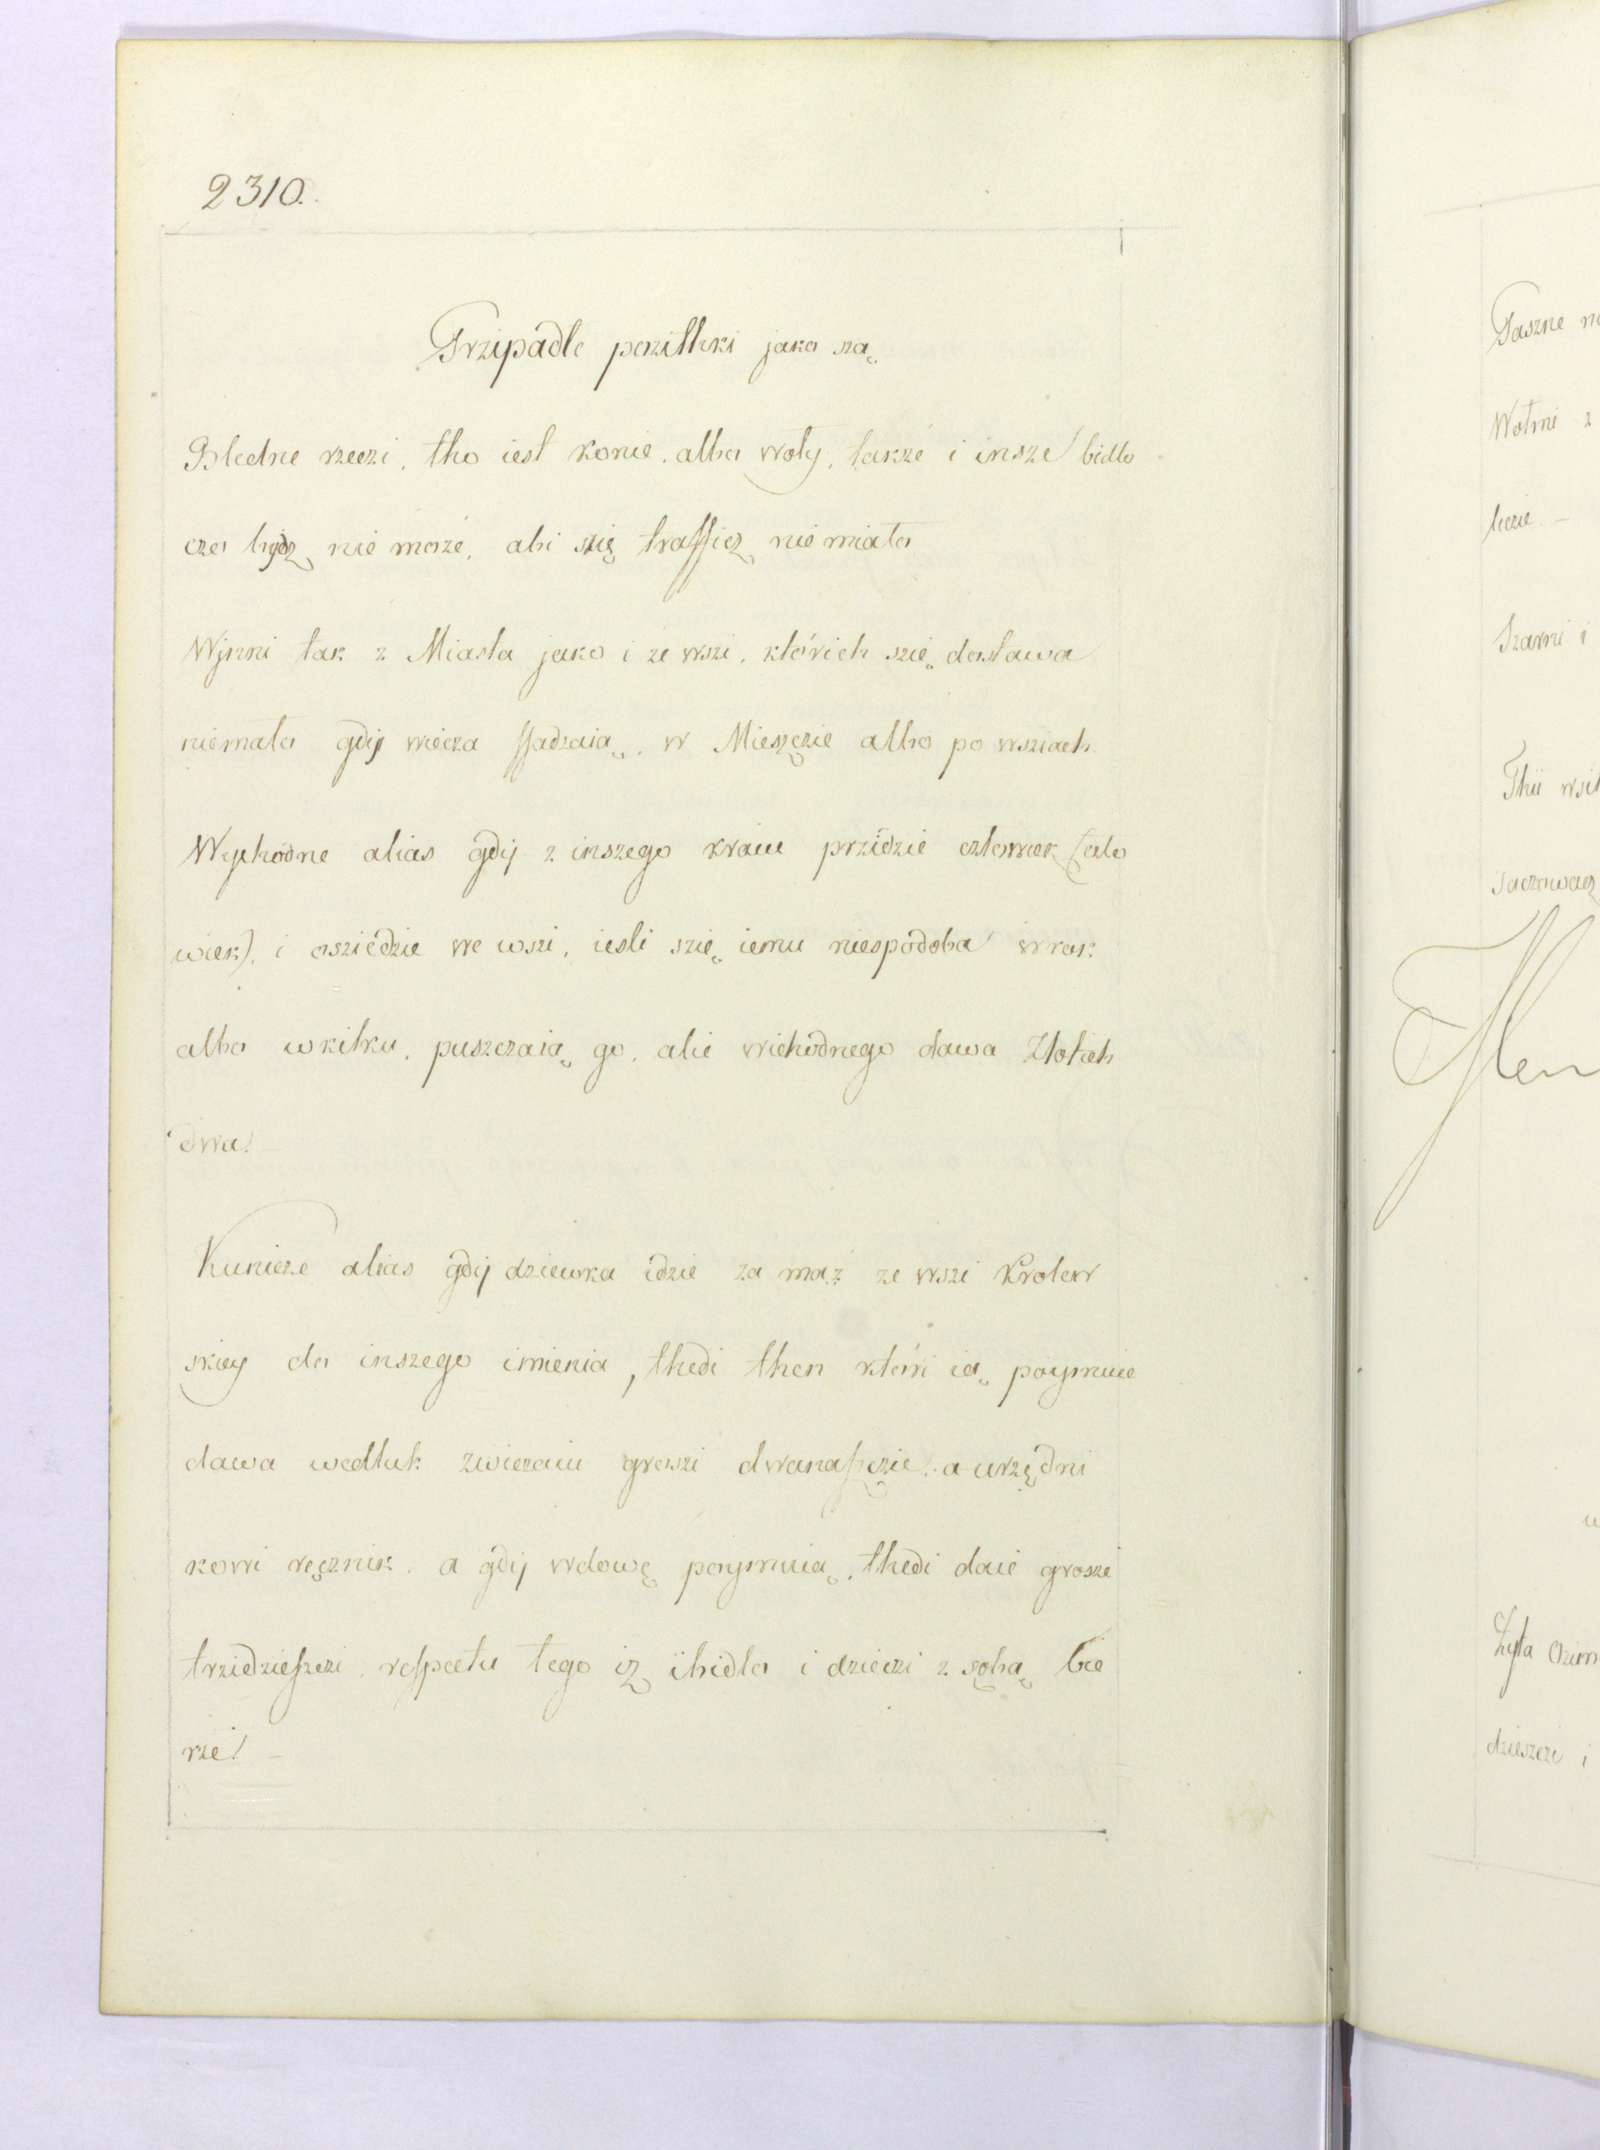 2310.
Przipadle pozithki jako są.
Błedne rzeczi, tho iest konie, albo woły, także i insze bidlo
czo bydz nie może, abi szię trafficz nie miało
Wjnni tak z Miasta jako i ze wszi, których szię dostawa
niemało gdij wiecza ssadzaią, w Mieszczie albo po wsziach
Wychodne alias gdij z inszego kraiu przidzie człowiek (czło
wiek), i osziędzie we wszi, iesli szię iemu niespodoba w rok
albo w kilku, puszczaią go, alie wichodnego dawa Złotich
dwa.
Kunicze alias gdij dziewka idzie za mąz ze wszi Krolew
skiey do inszego imienia, thedi then którii ią poymuie
dawa wedłuk zwiczaiu groszi dwanaszczie, a urzędni
kowi ręcznik, a gdij wdowę poymuią, thedi daie grosze
trzidzieszczi, respectu tego iz ibidło i dzieczi z sobą bie
rze. —
Paszne
Wołmi z
liczie. —
Szarni i
Thii
Żyta Ozim
dzieszczi i